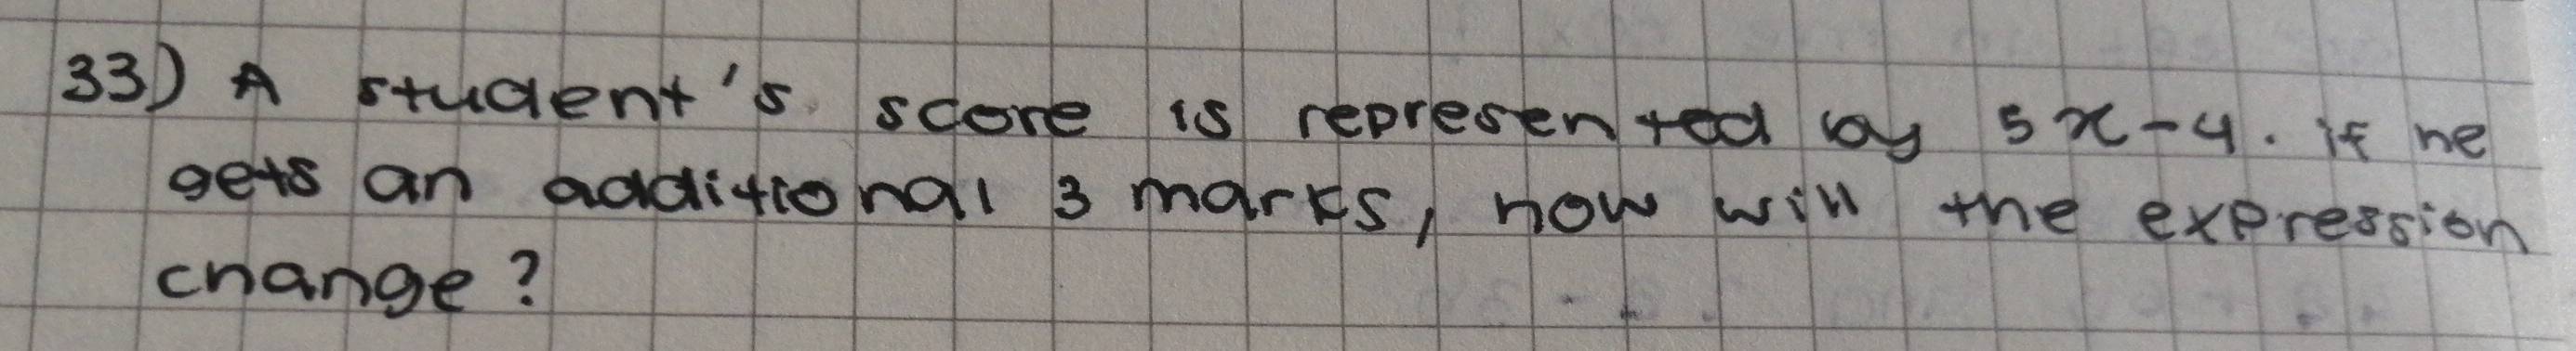 33) A student's score is represented by 5x-4. if he
gets an additional 3 marks, how will the expression
change?